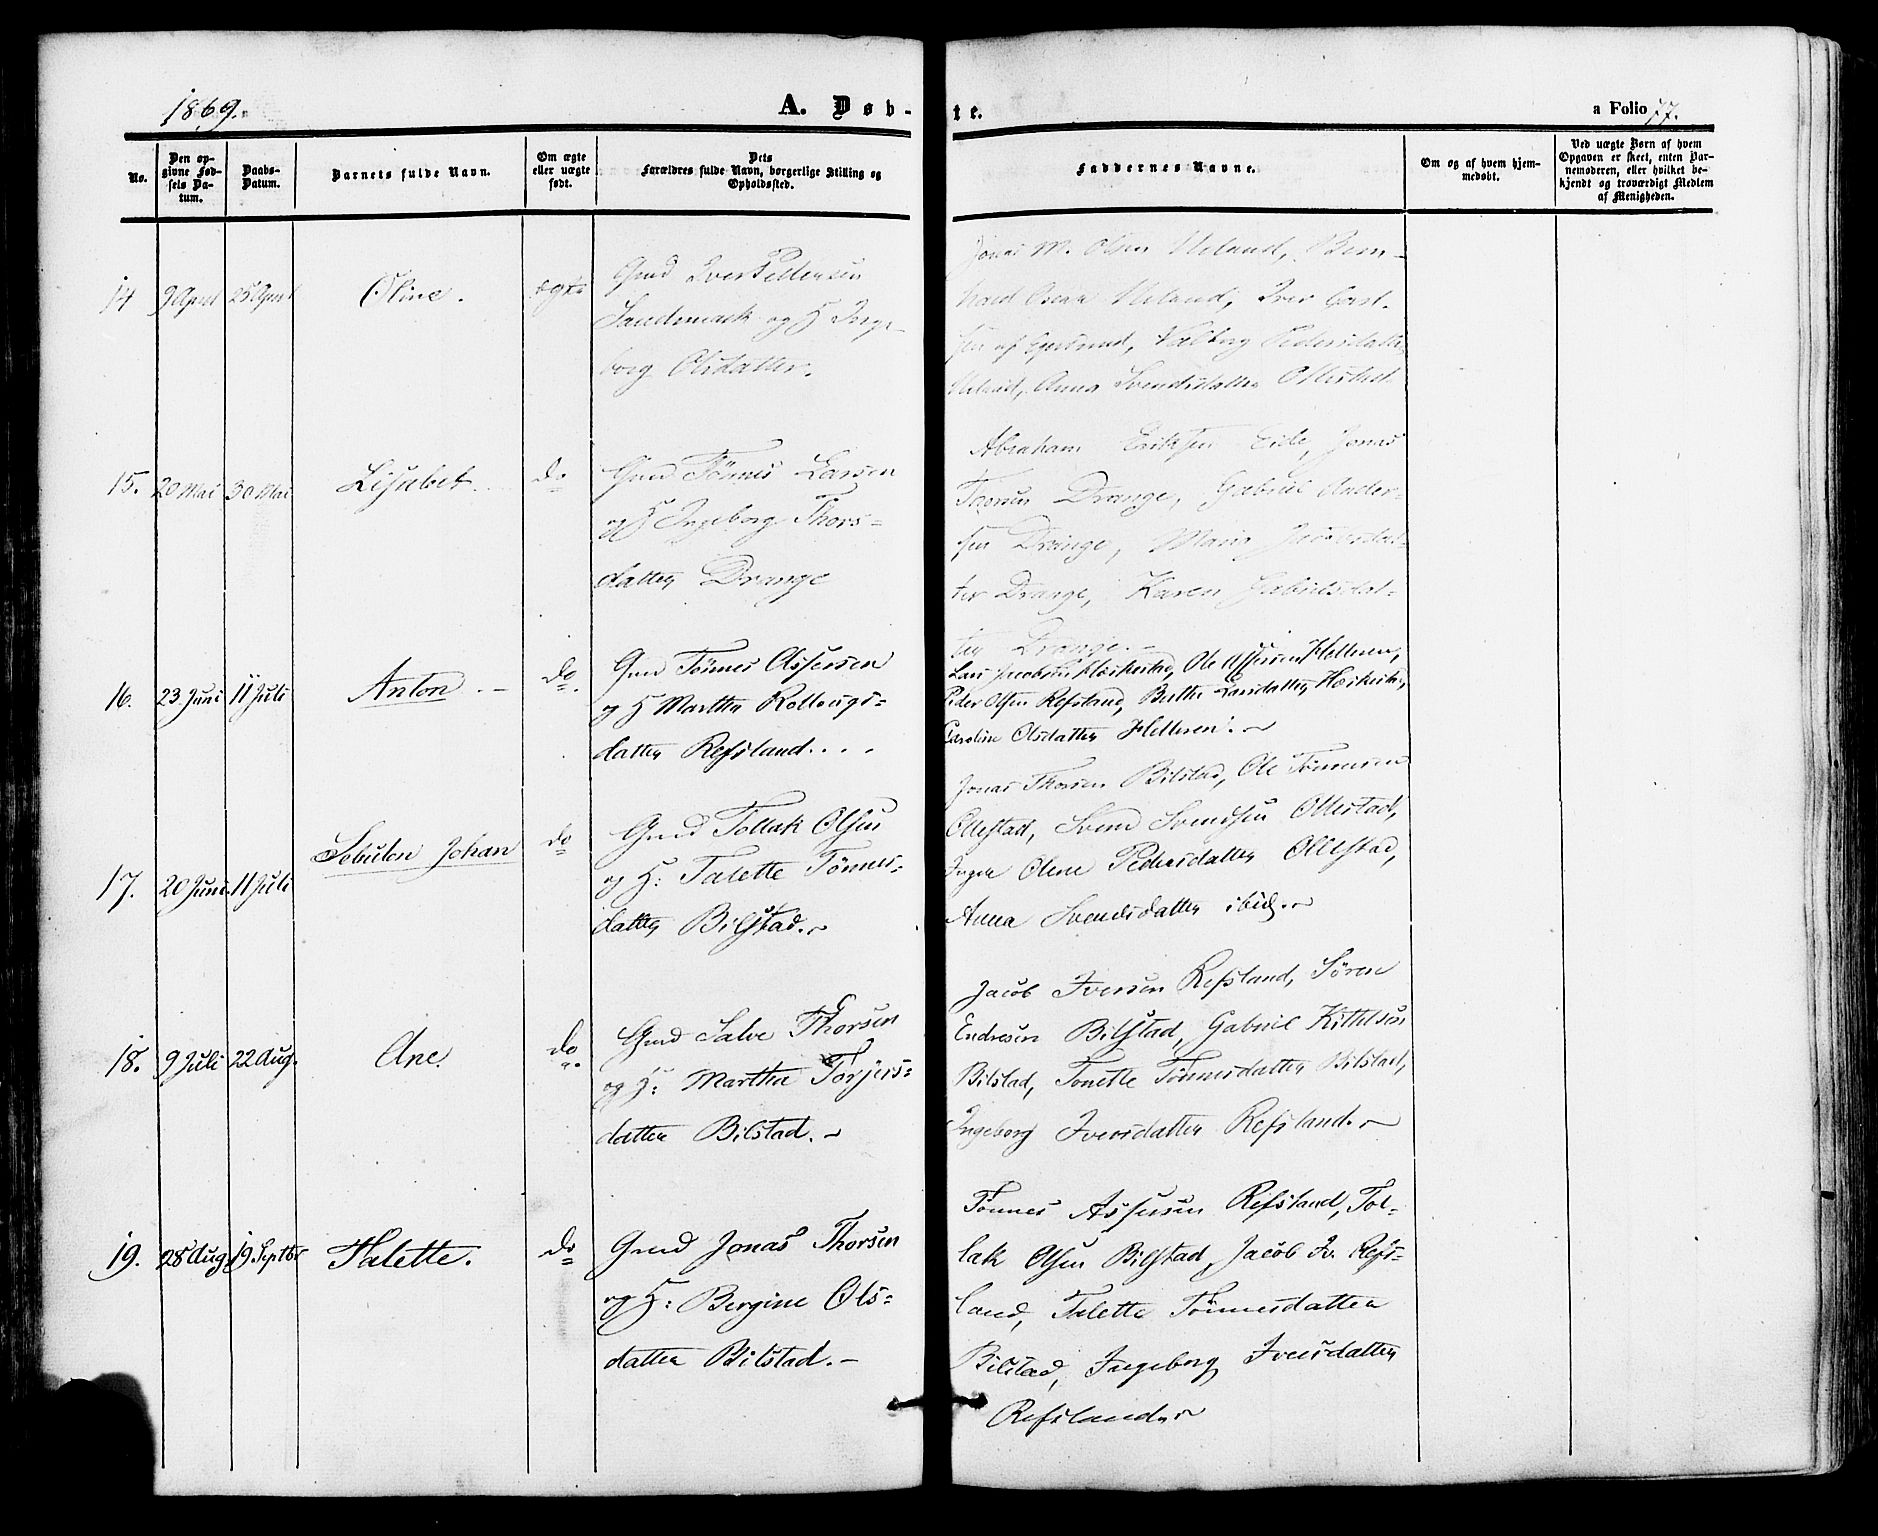 1869.
A. Døb-te.
a Folio 77.
No.
Den op-
givne Fød-
sels Da-
tum.
Daabs-
Datum.
Barnets fulde Navn.
Om ægte
eller uægte
født.
Dets
Forældres fulde Navn, borgerlige Stilling og
Opholdssted.
Faddernes Navne.
Om og af hvem hjem-
medøbt.
Ved uægte Børn af hvem
Opgaven er skeet, enten Bar-
nemoderen, eller hvilket be-
kjendt og troværdigt Medlem
af Menigheden.
14 9 April 25 April Oline. ægte
Gmd Iver Pedersen
og H Inge-
borg Olsdatter.
Jonas M. Olsen Ueland, Bern-
hard Oscar Ueland, Iver
af Egersund, Valborg Pedersdatter
Ueland, Anna Svendsdatter Ollestad
15. 20 Mai 30 Mai Lisabet do
Gmd Tönnes Larsen
og H Ingeborg Thors-
datter Drange
Abraham Eriksen Eide, Jonas
Drange, Gabriel Ander-
sen Drange, Maria
ter Drange, Karen Gabrielsdat-
ter Drange.-
16. 23 Juni 11 Juli Anton. - do
Gmd Tönnes Assersen
og H Martha Kolbeinsdatter Refsland....
Lars Jacobsen Hæskestad, Ole Assersen Helleren,
Peder Olsen Refsland, Berthe Larsdatter Hæskestad,
Caroline Olsdatter Helleren.
17. 20 Juni 11 Juli Sebulon Johan do
Gmd Tollak Olsen
og H: Talette Tönnes-
datter Bilstad.
Jonas Thorsen Bilstad, Ole Tönnesen
Ollestad, Svend Svendsen Ollestad,
Inger Oline Pedersdatter Ollestad,
Anna Svendsdatter ibid.
18. 9 Juli 22 Aug. Ane. do
Gmd Salve Thorsen
og H: Martha Torjers-
datter Bilstad.
Jacob Iversen Refsland, Sören
Endresen Bilstad, Gabriel Kithelsen
Bilstad, Tonette Tönnesdatter Bilstad,
Ingeborg Iversdatter Refsland.
19. 28 Aug 19 Septbr Talette. do
Gmd Jonas Thorsen
og H: Bergine Ols-
datter Bilstad.-
Tönnes Assersen Refsland, Tol-
lak Olsen Bilstad, Jacob Iv. Refs-
land, Talette Tönnesdatter
Bilstad, Ingeborg Iversdatter
Refsland.